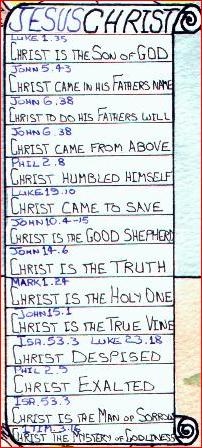 JESUS CHRIST
LUKE 1.35
CHRIST IS THE SON OF GOD
JOHN 5.43
CHRIST CAME IN HIS FATHERS NAME
JOHN 6.38
CHRIST TO DO HIS FATHERS WILL
JOHN 6.38
CHRIST CAME FROM ABOVE
PHIL 2.8
CHRIST HUMBLED HIMSELF
LUKE 19.10
CHRIST CAME TO SAVE
JOHN 10.4-15
CHRIST IS THE GOOD SHEPHERD
JOHN 14.6
CHRIST IS THE TRUTH
MARK 1.24
CHRIST IS THE HOLY ONE
JOHN 15.1
CHRIST IS THE TRUE VINE
ISA. 53.3 LUKE 23.18
CHRIST DESPISED
PHIL 2.9
CHRIST EXALTED
ISA. 53.3
CHRIST IS THE MAN OF SORROW
I TIM. 3.16
CHRIST THE MYSTERY OF GODLINESS